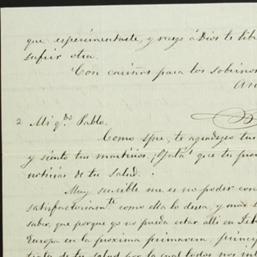 que esperimentaste, y ruego á Dios te libr
sufrir otra.
Con cariños para los sobrinos
2 Mi qdo Pablo.
Como spre, te agradezco tu
y siento tus martirios, que tu
noticias de tu salud.
Muy sencible me es no poder con
satisfactoriamte como ella lo desea, y mas
saber, que porque yo no pueda estar alli en Feb
Europa en la proxima primavera, princip
de tu salud por la cual todos nos int